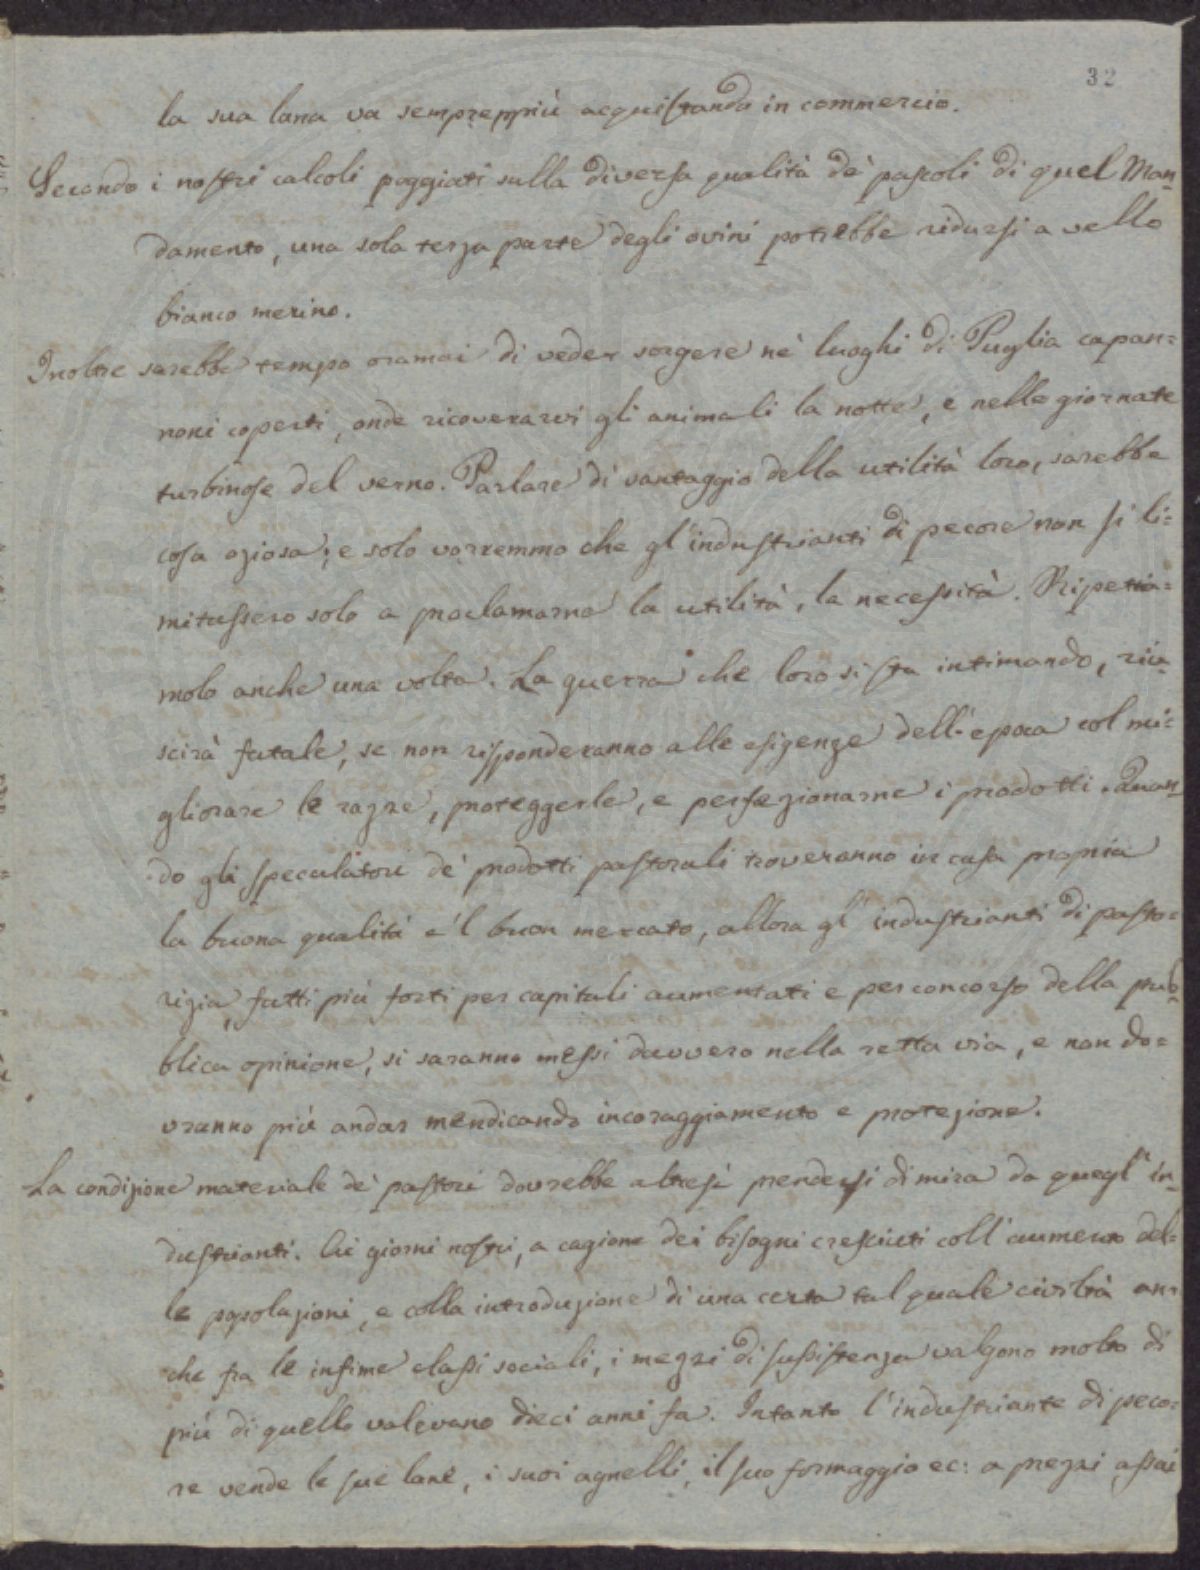 32
la sua lana va sempreppiù acquistando in commercio.
Secondo i nostri calcoli poggiati sulla diversa qualità de' pascoli di quel Man=
damento, una sola terza parte degli ovini potrebbe ridursi a vello
bianco merino.
Inoltre sarebbe tempo oramai di veder sorgere ne' luoghi di Puglia capan=
noni coperti, onde ricoverarvi gli animali la notte, e nelle giornate
turbinose del verno. Parlare di vantaggio della utilità loro, sarebbe
cosa oziosa; e solo vorremmo che gl'industrianti di pecore non si li=
mitassero solo a proclamarne la utilità, la necessità. Ripetia=
molo anche una volta. La guerra che loro si sta intimando, riu=
scirà fatale, se non risponderanno alle esigenze dell'epoca col mi=
gliorare le razze, proteggerle, e perfezionarne i prodotti. Quan=
do gli speculatori de' prodotti pastorali troveranno in casa propria
la buona qualità e'l buon mercato, allora gl'industrianti di pasto=
rizia, fatti più forti per capitali aumentati e per concorso della pub=
blica opinione, si saranno messi davvero nella retta via, e non do=
vranno più andar mendicando incoraggiamento e protezione.
La condizione materiale de' pastori dovrebbe altresì prendersi di mira da quegl'in=
dustrianti. Ai giorni nostri, a cagione dei bisogni cresciuti coll'aumento del=
le popolazioni, e colla introduzione di una certa tal quale civiltà an=
che fra le infime classi sociali, i mezzi di sussistenza valgono molto di
più di quello valevano dieci anni fa. Intanto l'industriante di peco=
re vende le sue lane, i suoi agnelli, il suo formaggio ec: a prezzi assai